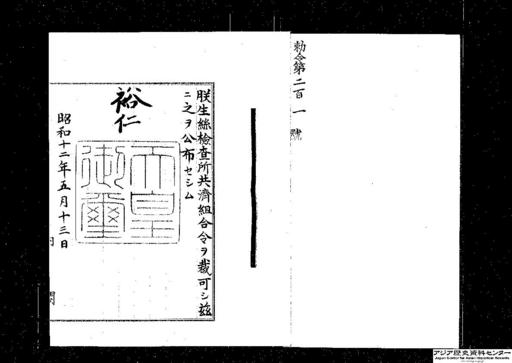 勅令第二百一號
朕生絲檢查所共濟組合令ヲ裁可シ茲
ニ之ヲ公布セシム
裕仁
天皇御璽
昭和十二年五月十三日
アジア歴史資料センター
Japan Center for Asian Historical Records